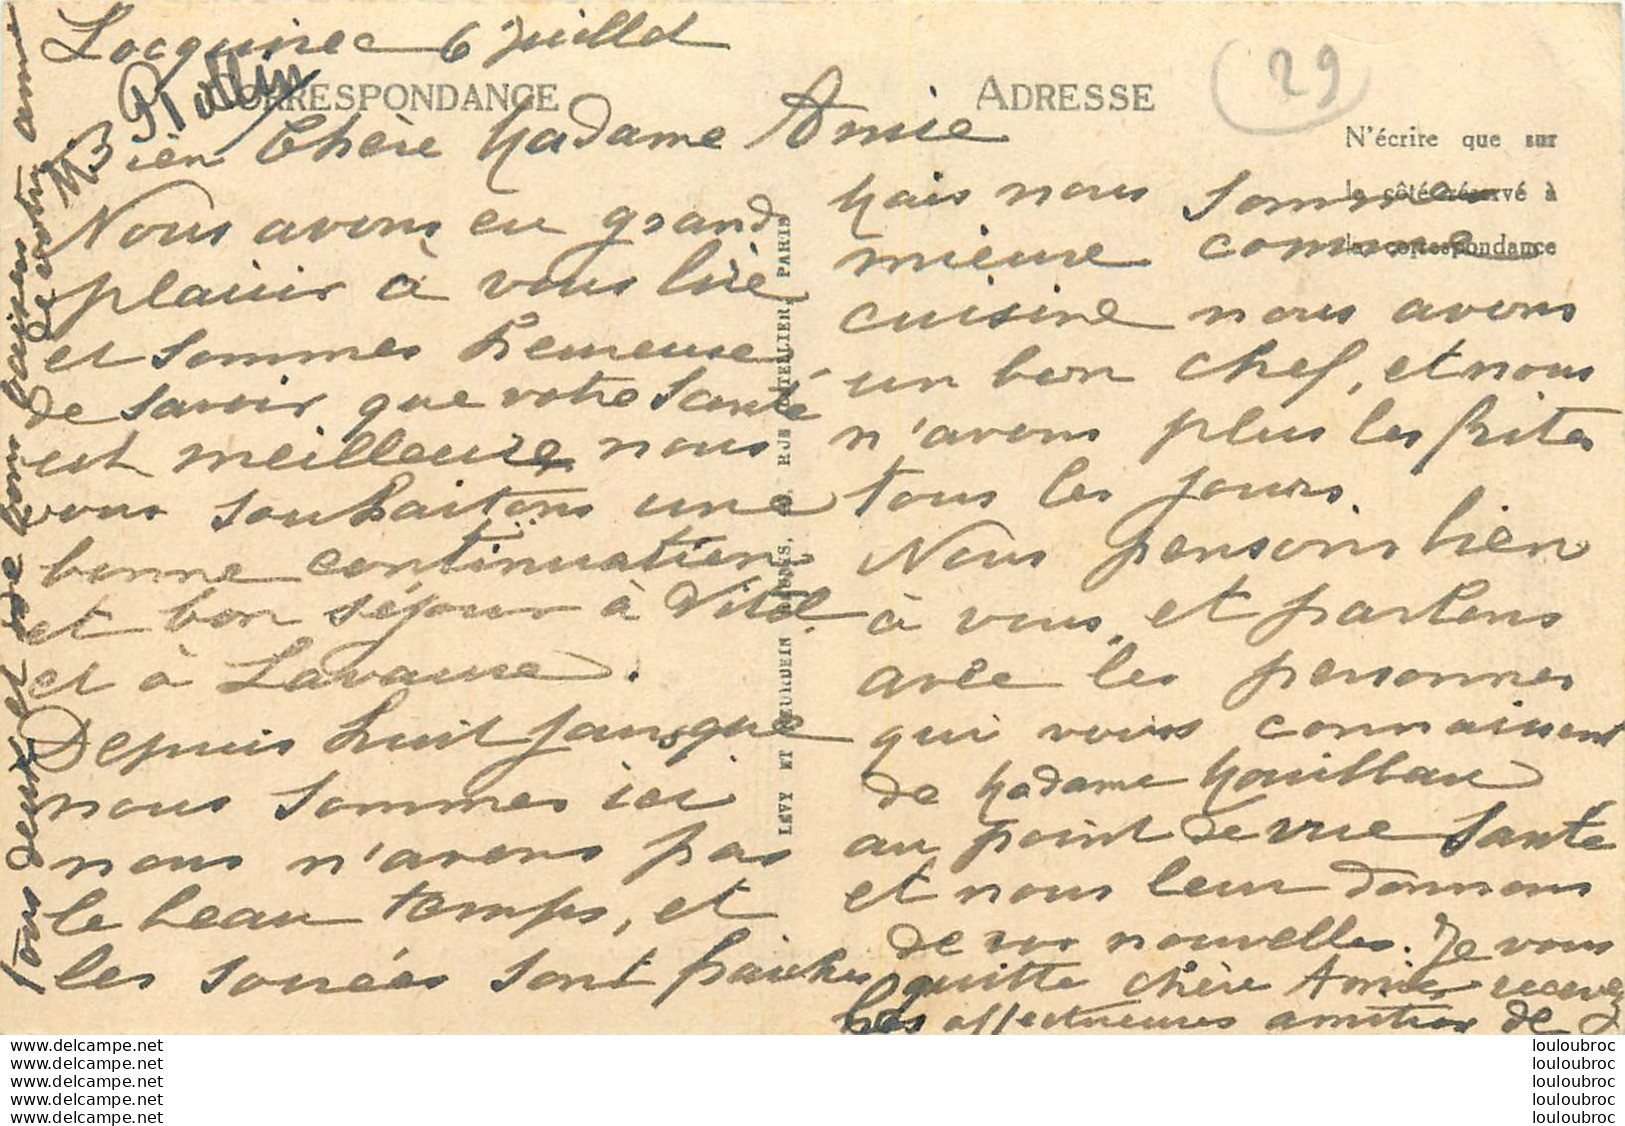 Locquirec 6 Juillet
CORRESPONDANCE
ADRESSE
29
N'écrire que sur
le côté réservé à
la correspondance
Bien Chère Madame Amie
Nous avons eu grand
plaisir à vous lire
et sommes heureuse
de savoir que votre santé
est meilleure, nous
vous souhaitons une
bonne continuation
et bon séjour à Vitel
et à Lavaure.
Depuis huit jours que
nous sommes ici
nous n'avons pas
le beau temps, et
les soirées sont fraiches
Mais nous sommes
mieux comme
cuisine nous avons
un bon chef, et nous
n'avons plus les frites
tous les jours.
Nous pensons bien
à vous, et parlons
avec les personnes
qui vous connaissent
de Madame Mouillau
au point de vue santé
et nous leur donnons
de vos nouvelles. Je vous
quitte chère Amie recevez
les affectueuses amitiés de
tous deux et de bons baisers
de votre amie
M B Rollin
LEVY ET NEURDEIN RÉUNIS, RUE LETELLIER, PARIS
louloubroc louloubroc
louloubroc louloubroc
louloubroc louloubroc
louloubroc louloubroc
louloubroc louloubroc